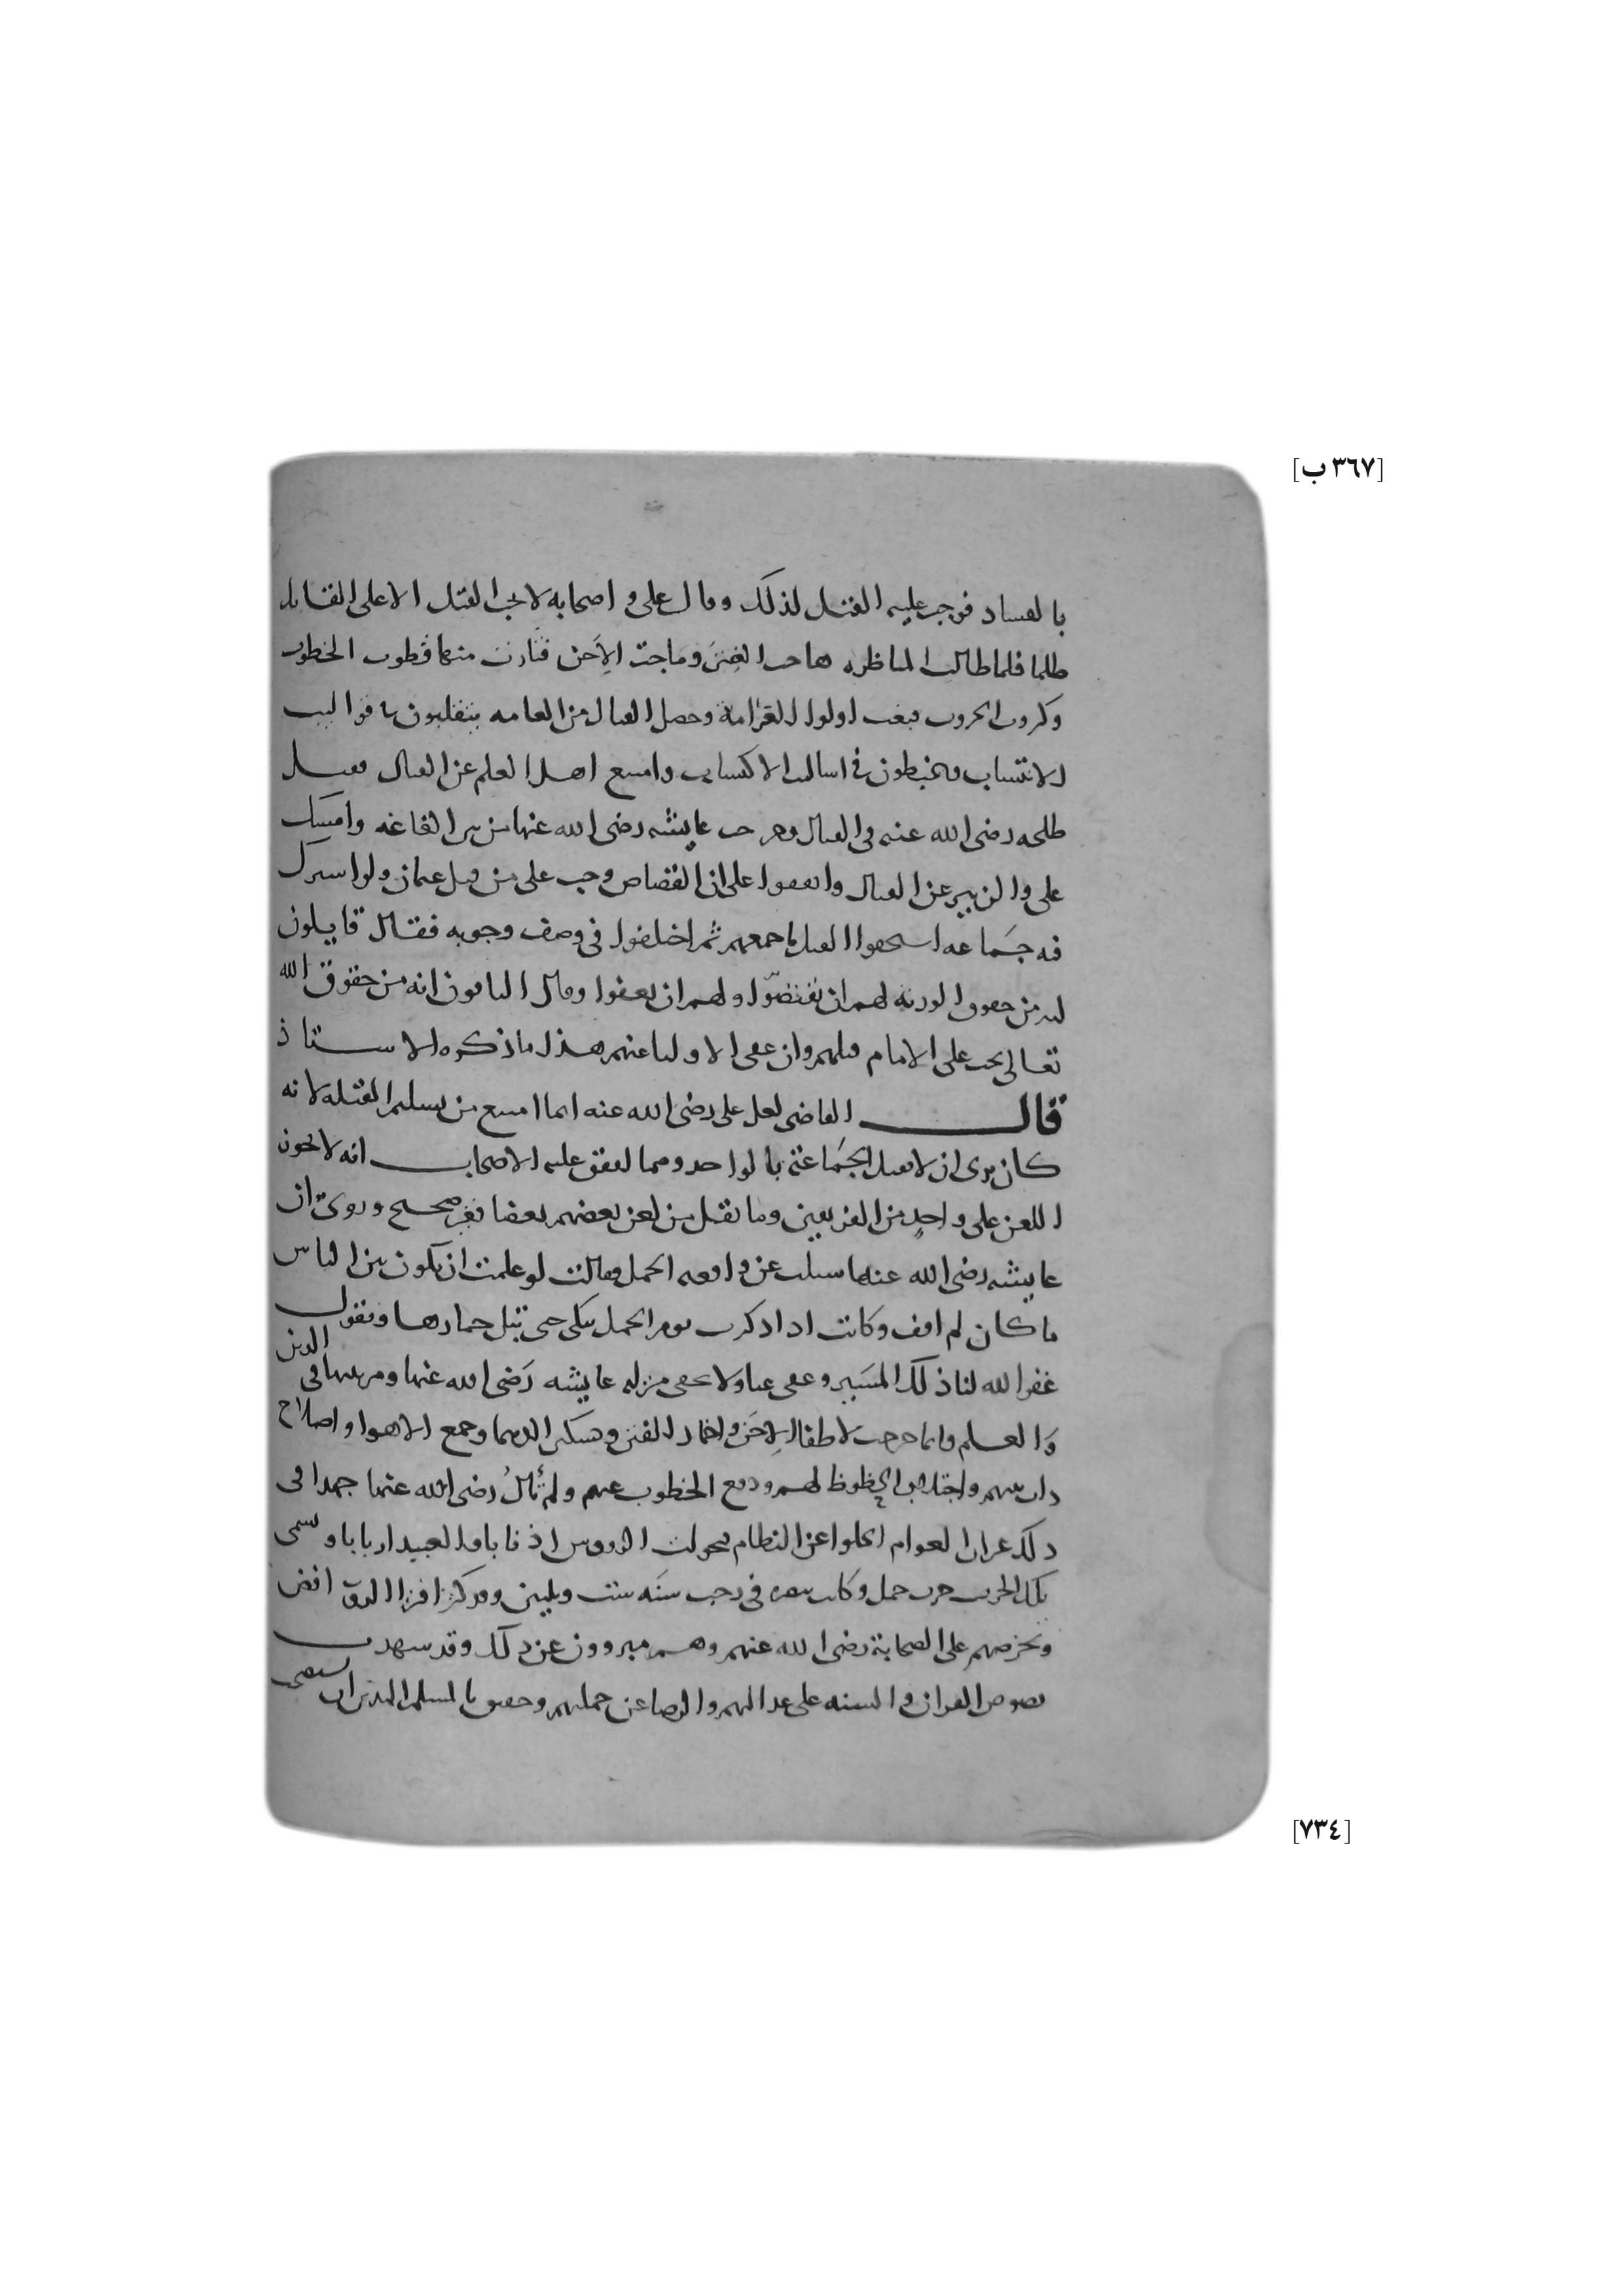 [٣٦٧ ب]
بالفساد فوجب عليه القتل لذلك وقال علي واصحابه لا يجب القتل الا على القاتل
ظلما فلما طالت المناظره هاجت الفتن وماجت الاحن فثارت منها قطوب الخطوب
وكروب الحروب اولوا القرامة وحصل القتال من العامه يتقلبون
الانتساب ويتخبطون في اسالب الاكتساب وامتنع اهل العلم عن القتال فقتل
طلحه رضي الله عنه في القتال وخرجت عايشه رضي الله عنها من وامسك
علي والزبير عن القتال واتفقوا على ان القصاص وجب على من قتل عثمان ولو اشترك
فيه جماعه استحقوا القتل باجمعهم ثم اختلفوا في وصف وجوبه فقال قايلون
انه من حقوق الورثه لهم ان يقتصوا ولهم ان يعفوا وقال الباقون انه من حقوق الله
تعالى يجب على الامام قتلهم وان عفى الاوليا عنهم هذا ما ذكره الاستاذ
قال القاضي لعل علي رضي الله عنه انما امتنع من تسليم القتله لانه
كان يرى ان لا يقتل الجماعة بالواحد ومما اتفق عليه الاصحاب انه لا يجوز
اللعن على واحد من الفريقين وما نقل من لعن بعضهم بعضا فغير صحيح وروي ان
عايشه رضي الله عنها سيلت عن واقعه الجمل فقالت لو علمت ان يكون بين الناس
ما كان لم اقف وكانت اذا ذكرت يوم الجمل تبكي حتى تبل خمارها وتقول
غفر الله لنا ذلك المسير وعفى عنا ولا يخفى منزله عايشه رضي الله عنها ومرتبتها في الدين
والعلم وانما خرجت لاطفا الاحن واخماد الفتن وتسكين الدهما وجمع الاهوا واصلاح
ذات بينهم واجتلاب الحظوظ لهم ودفع الخطوب عنهم ولم تال رضي الله عنها جهدا في
ذلك غير ان العوام انحلوا عن النظام فتحولت الرووس اذنابا والعبيد اربابا وسمي
تلك الحرب حرب جمل وكانت في رجب سنه ست وثلثين وقد كثر افترا الروافض
وتخرصهم على الصحابة رضي الله عنهم وهم مبروون عن ذلك وقد شهدت
نصوص القران والسنه على عدالتهم والرضا عن جملتهم وحقيق بالمسلم المتدين ان
[٧٣٤]